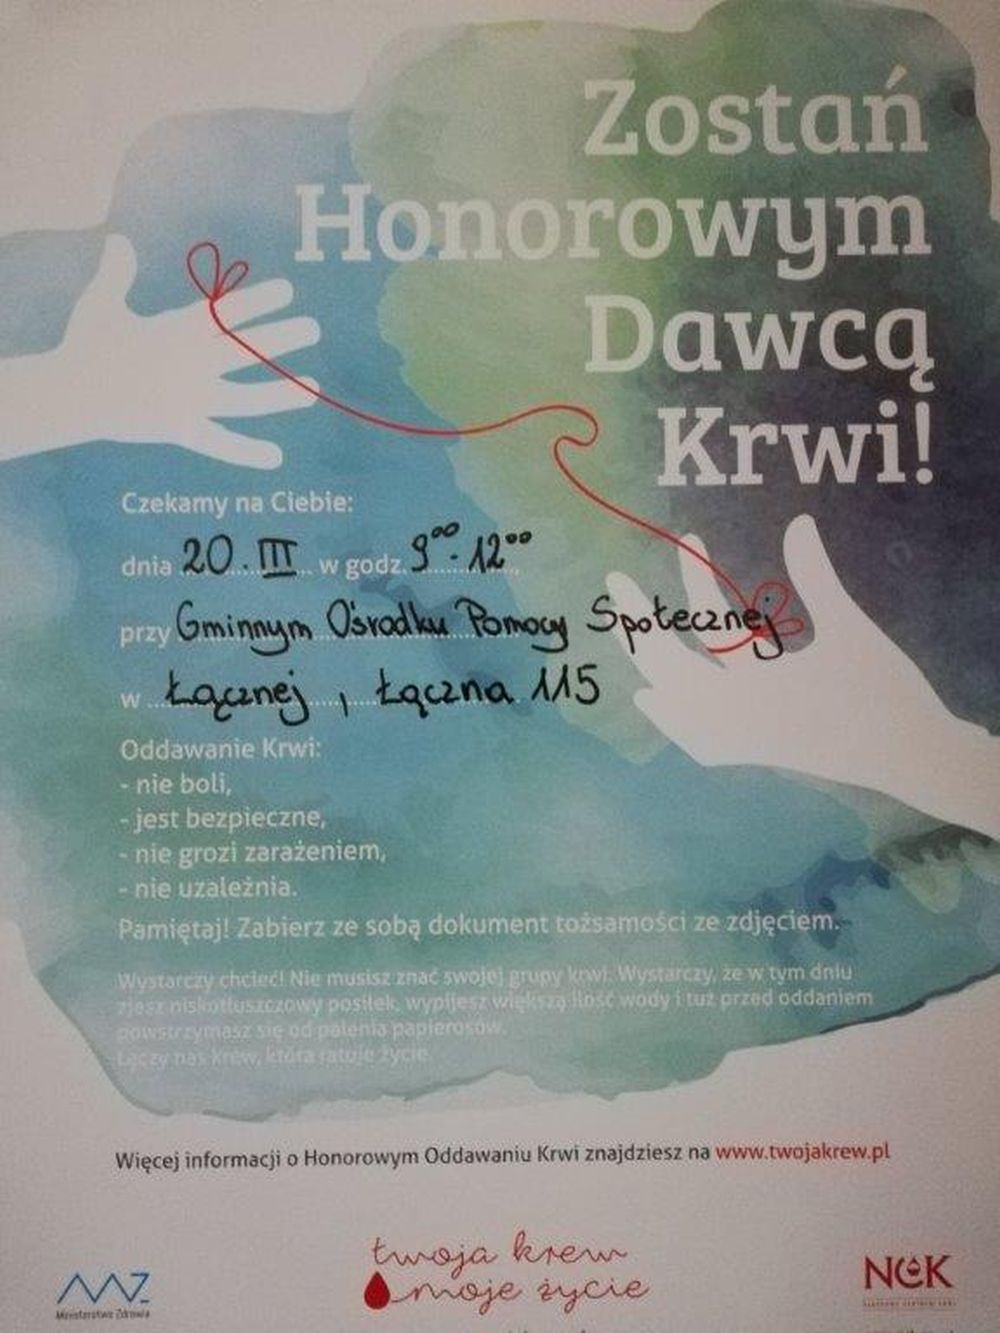 Zostań
Honorowym
Dawcą
Krwi!
Czekamy na Ciebie:
dnia 20.III w godz. 9⁰⁰-12⁰⁰
przy Gminnym Ośrodku Pomocy Społecznej
w Łącznej, Łączna 115
Oddawanie Krwi:
- nie boli,
- jest bezpieczne,
- nie grozi zarażeniem,
- nie uzależnia.
Pamiętaj! Zabierz ze sobą dokument tożsamości ze zdjęciem.
Wystarczy chcieć! Nie musisz znać swojej grupy krwi. Wystarczy, że w tym dniu
zjesz niskotłuszczowy posiłek, wypijesz większą ilość wody i tuż przed oddaniem
powstrzymasz się od palenia papierosów.
Łączy nas krew, która ratuje życie.
Więcej informacji o Honorowym Oddawaniu Krwi znajdziesz na www.twojakrew.pl
twoja krew
moje życie
MZ
Ministerstwo Zdrowia
NCK